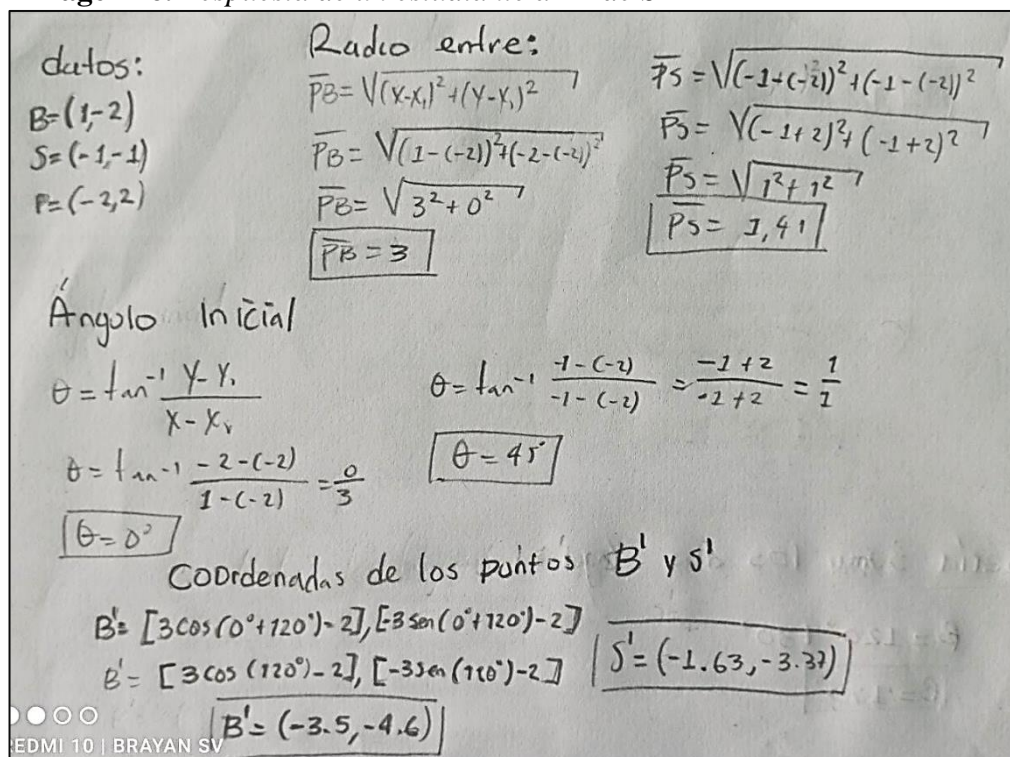 datos:
B=(1,-2)
S=(-1,-1)
P=(-2,2)
Radio entre:
PB=√(x-x₁)²+(y-y₁)²
PB=√(1-(-2))²+(-2-(-2))²
PB=√3²+0²
PB=3
PS=√(-1+(-2))²+(-1-(-2))²
PS=√(-1+2)²+(-1+2)²
PS=√1²+1²
PS=1,41
Ángulo Inicial
θ=tan⁻¹ y-y₁/x-x₁
θ=tan⁻¹ -2-(-2)/1-(-2)=0/3
θ=0°
θ=tan⁻¹ -1-(-2)/-1-(-2)=-1+2/-1+2=1/1
θ=45°
Coordenadas de los puntos B' y S'
B'=[3cos(0°+120°)-2],[-3sen(0°+120°)-2]
B'=[3cos(120°)-2],[-3sen(120°)-2]
B'=(-3.5,-4.6)
S'=(-1.63,-3.37)
EDMI 10 | BRAYAN SV